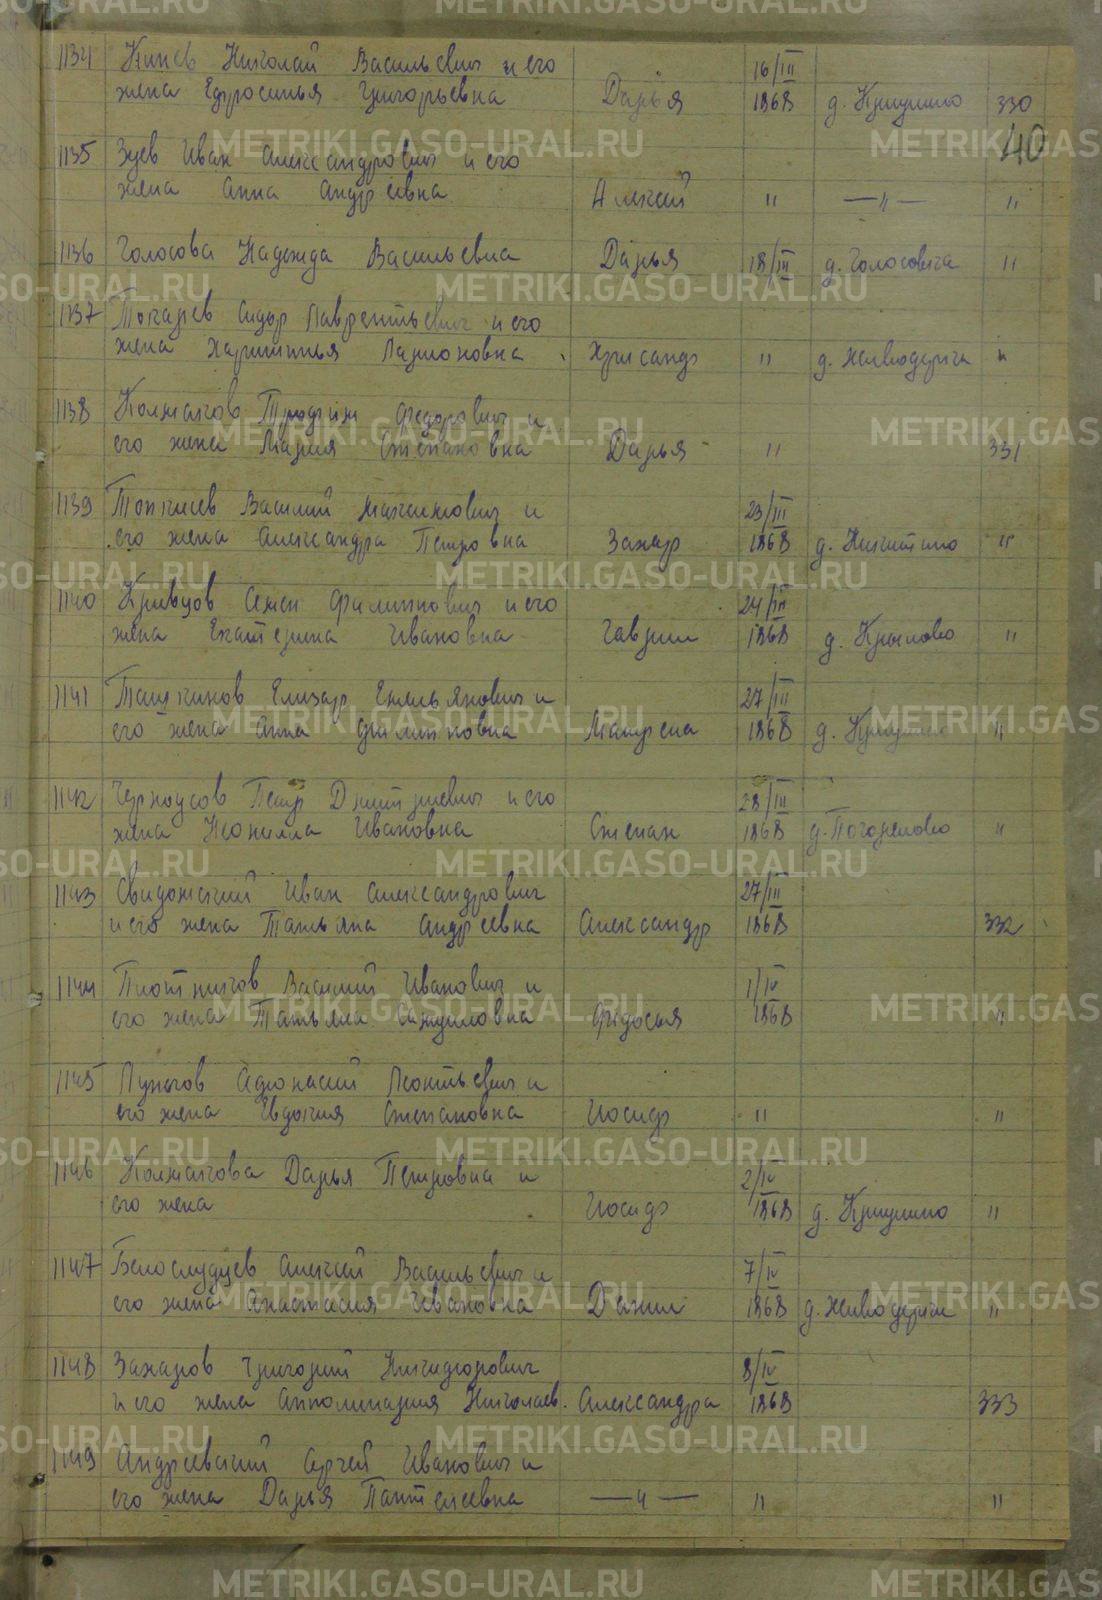 1134 Кинев Николай Васильевич и его 16/III
жена Ефросинья Григорьевна Дарья 1868 д. Криулино 330
40
1135 Зуев Иван Александрович и его
жена Анна Андреевна Алексей " —"— "
1136 Голосова Надежда Васильевна Дарья 18/III д. Голосовича "
1137 Токарев Сидор Лаврентьевич и его
жена Харитинья Ларионовна Хрисанф " "
1138 Колмаков Трофим Федорович и
его жена Мария Степановна Дарья " 331
1139 Топкисев Василий Максимович и 23/III
его жена Александра Петровна Захар 1868 д. Никитино "
1140 Кривцов Семен Филиппович и его 24/III
жена Екатерина Ивановна Гаврил 1868 д. Крылово "
1141 Ташкинов Елизар Емельянович и 27/III
его жена Анна Филипповна Матрена 1868 д. Криулино "
1142 Черноусов Петр Дмитриевич и его 28/III
жена Неонилла Ивановна Степан 1868 д. Погорелово "
1143 Свидонский Иван Александрович 27/III
и его жена Татьяна Андреевна Александр 1868 332
1144 Плотников Василий Иванович и 1/IV
его жена Татьяна Самуиловна Федосья 1868 "
1145 Пупков Афонасий Леонтьевич и
его жена Евдокия Степановна Иосиф " "
1146 Колмакова Дарья Петровна и 2/IV
его жена Иосиф 1868 д. Криулино "
1147 Белослудцев Алексей Васильевич и 7/IV
его жена Анастасия Ивановна Данил 1868 "
1148 Захаров Григорий Никифорович 8/IV
и его жена Апполинария Николаев. Александра 1868 333
1149 Андреевский Сергей Иванович и
его жена Дарья Пантелеевна —"— " "
METRIKI.GASO-URAL.RU